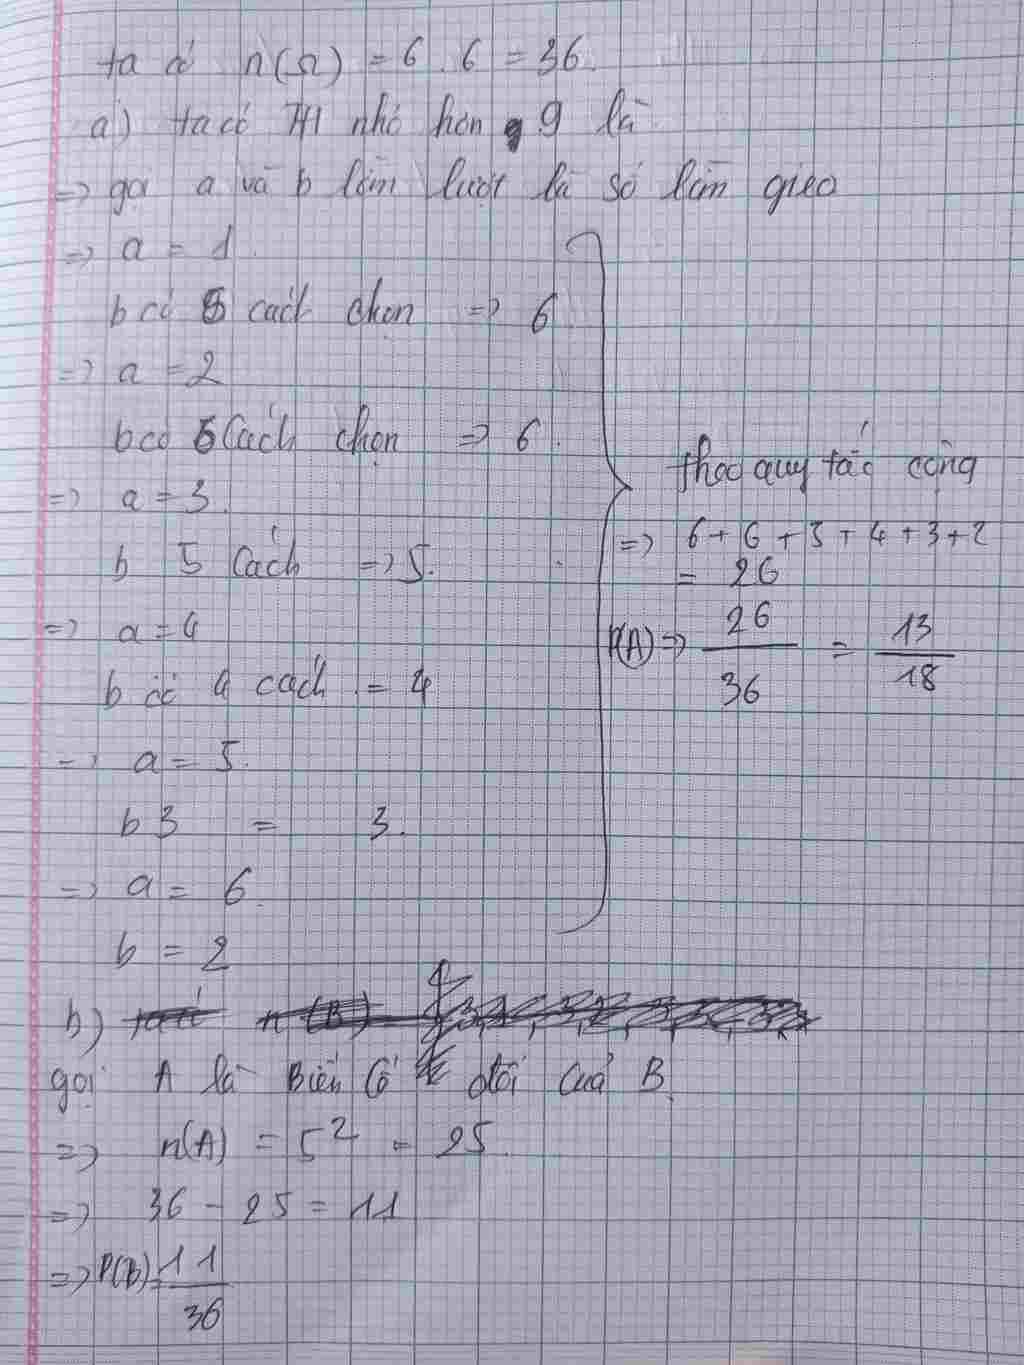 ta có n(Ω) = 6 . 6 = 36.
a) ta có TH nhỏ hơn 9 là
=> gọi a và b lần lượt là số lần gieo
=> a = 1.
b có 6 cách chọn => 6
=> a = 2
b có 6 Cách chọn => 6.
=> a = 3.
b 5 Cách => 5.
=> a = 4
b có 4 cách = 4
=> a = 5.
b 3 = 3.
=> a = 6.
b = 2
theo quy tắc cộng
=> 6 + 6 + 5 + 4 + 3 + 2
= 26
P(A) => 26/36 = 13/18
b)
gọi A là Biến Cố đối của B.
=> n(A) = 5² = 25.
=> 36 - 25 = 11
=> P(B) = 11/36